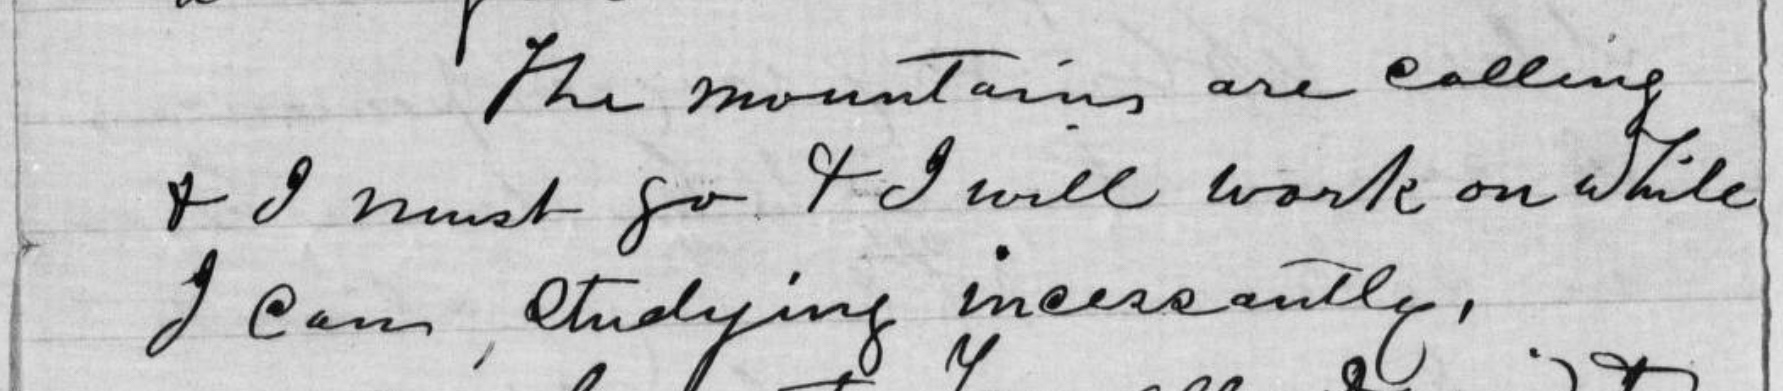 The mountains are calling
& I must go & I will work on while
I can, studying incessantly.